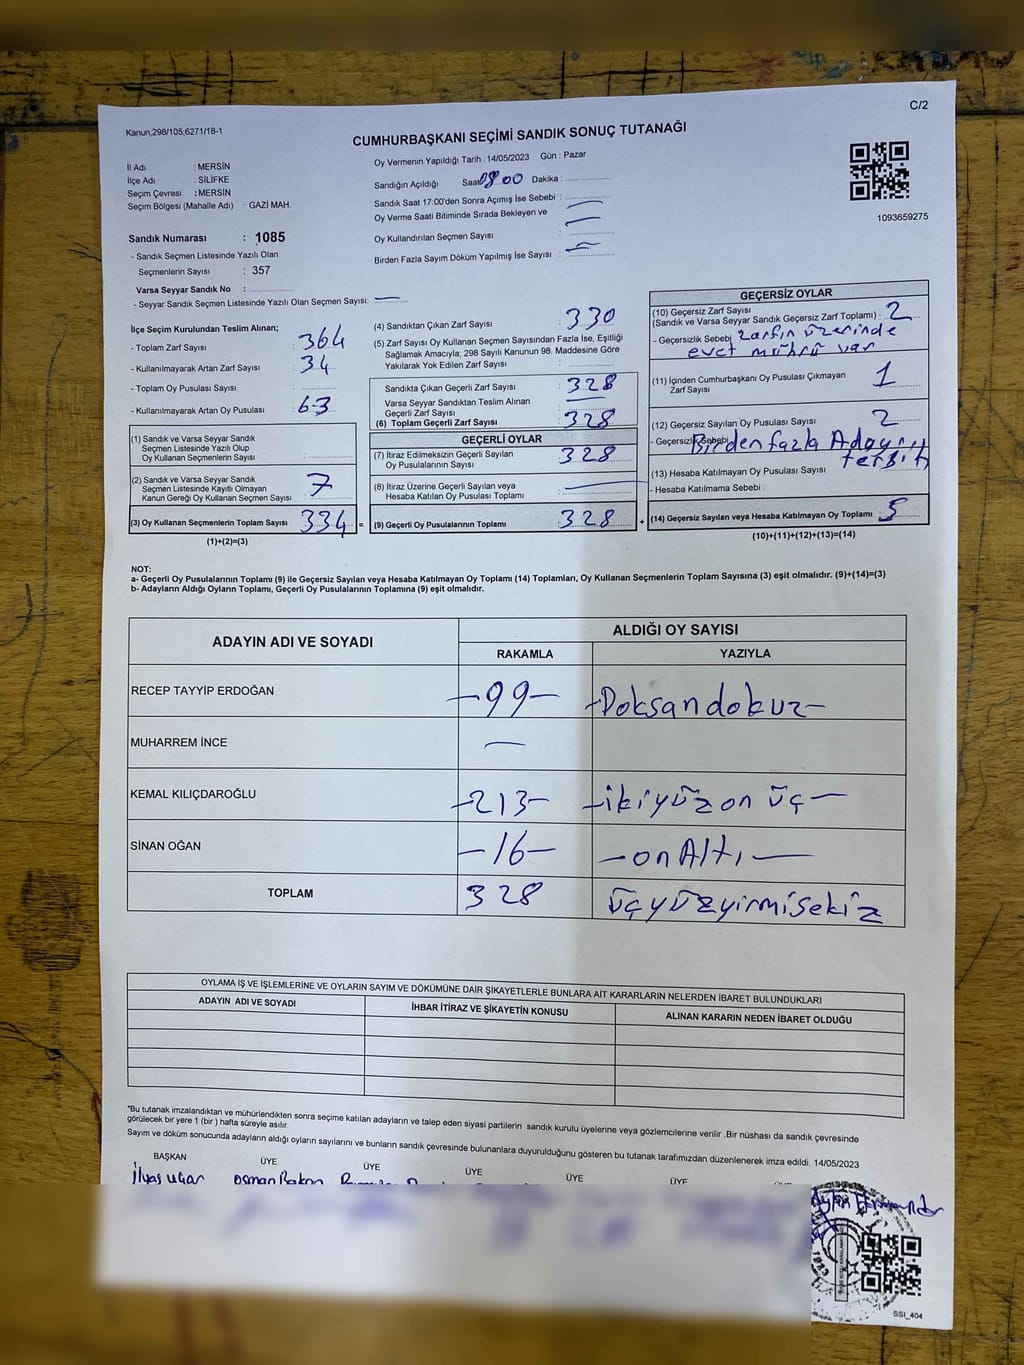 C/2
Kanun;298/105;6271/18-1
CUMHURBAŞKANI SEÇİMİ SANDIK SONUÇ TUTANAĞI
1093659275
İl Adı : MERSİN
İlçe Adı : SİLİFKE
Seçim Çevresi : MERSİN
Seçim Bölgesi (Mahalle Adı) : GAZİ MAH.
Sandık Numarası : 1085
- Sandık Seçmen Listesinde Yazılı Olan
Seçmenlerin Sayısı : 357
Varsa Seyyar Sandık No :
- Seyyar Sandık Seçmen Listesinde Yazılı Olan Seçmen Sayısı: —
Oy Vermenin Yapıldığı Tarih : 14/05/2023 Gün : Pazar
Sandığın Açıldığı Saat: 08 00 Dakika :
Sandık Saat 17:00'den Sonra Açımış İse Sebebi : —
Oy Verme Saati Bitiminde Sırada Bekleyen ve
Oy Kullandırılan Seçmen Sayısı : —
Birden Fazla Sayım Döküm Yapılmış İse Sayısı : —
İlçe Seçim Kurulundan Teslim Alınan;
- Toplam Zarf Sayısı : 364
- Kullanılmayarak Artan Zarf Sayısı : 34
- Toplam Oy Pusulası Sayısı :
- Kullanılmayarak Artan Oy Pusulası : 63
(1) Sandık ve Varsa Seyyar Sandık
Seçmen Listesinde Yazılı Olup
Oy Kullanan Seçmenlerin Sayısı :
(2) Sandık ve Varsa Seyyar Sandık
Seçmen Listesinde Kayıtlı Olmayan
Kanun Gereği Oy Kullanan Seçmen Sayısı : 7
(3) Oy Kullanan Seçmenlerin Toplam Sayısı : 334 =
(1)+(2)=(3)
(4) Sandıktan Çıkan Zarf Sayısı : 330
(5) Zarf Sayısı Oy Kullanan Seçmen Sayısından Fazla İse, Eşitliği
Sağlamak Amacıyla; 298 Sayılı Kanunun 98. Maddesine Göre
Yakılarak Yok Edilen Zarf Sayısı :
Sandıkta Çıkan Geçerli Zarf Sayısı : 328
Varsa Seyyar Sandıktan Teslim Alınan
Geçerli Zarf Sayısı : —
(6) Toplam Geçerli Zarf Sayısı : 328
GEÇERLİ OYLAR
(7) İtiraz Edilmeksizin Geçerli Sayılan
Oy Pusulalarının Sayısı : 328
(8) İtiraz Üzerine Geçerli Sayılan veya
Hesaba Katılan Oy Pusulası Toplamı : —
(9) Geçerli Oy Pusulalarının Toplamı : 328 +
GEÇERSİZ OYLAR
(10) Geçersiz Zarf Sayısı
(Sandık ve Varsa Seyyar Sandık Geçersiz Zarf Toplamı) : 2
- Geçersizlik Sebebi : zarfın üzerinde
evet mührü var
(11) İçinden Cumhurbaşkanı Oy Pusulası Çıkmayan
Zarf Sayısı : 1
(12) Geçersiz Sayılan Oy Pusulası Sayısı : 2
- Geçersizlik Sebebi : Birden fazla Adayın
tercih
(13) Hesaba Katılmayan Oy Pusulası Sayısı :
- Hesaba Katılmama Sebebi :
(14) Geçersiz Sayılan veya Hesaba Katılmayan Oy Toplamı : 5
(10)+(11)+(12)+(13)=(14)
NOT:
a- Geçerli Oy Pusulalarının Toplamı (9) ile Geçersiz Sayılan veya Hesaba Katılmayan Oy Toplamı (14) Toplamları, Oy Kullanan Seçmenlerin Toplam Sayısına (3) eşit olmalıdır. (9)+(14)=(3)
b- Adayların Aldığı Oyların Toplamı, Geçerli Oy Pusulalarının Toplamına (9) eşit olmalıdır.
ADAYIN ADI VE SOYADI ALDIĞI OY SAYISI
RAKAMLA YAZIYLA
RECEP TAYYİP ERDOĞAN —99— —Doksandokuz—
MUHARREM İNCE —
KEMAL KILIÇDAROĞLU —213— —ikiyüzonüç—
SİNAN OĞAN —16— —onAltı—
TOPLAM 328 üçyüzyirmisekiz
OYLAMA İŞ VE İŞLEMLERİNE VE OYLARIN SAYIM VE DÖKÜMÜNE DAİR ŞİKAYETLERLE BUNLARA AİT KARARLARIN NELERDEN İBARET BULUNDUKLARI
ADAYIN ADI VE SOYADI İHBAR İTİRAZ VE ŞİKAYETİN KONUSU ALINAN KARARIN NEDEN İBARET OLDUĞU
"Bu tutanak imzalandıktan ve mühürlendikten sonra seçime katılan adayların ve talep eden siyasi partilerin sandık kurulu üyelerine veya gözlemcilerine verilir. Bir nüshası da sandık çevresinde
görülecek bir yere 1 (bir) hafta süreyle asılır.
Sayım ve döküm sonucunda adayların aldığı oyların sayılarını ve bunların sandık çevresinde bulunanlara duyurulduğunu gösteren bu tutanak tarafımızdan düzenlenerek imza edildi. 14/05/2023
BAŞKAN ÜYE ÜYE ÜYE ÜYE ÜYE
İlyas uçar osman Bakan
SSI_404